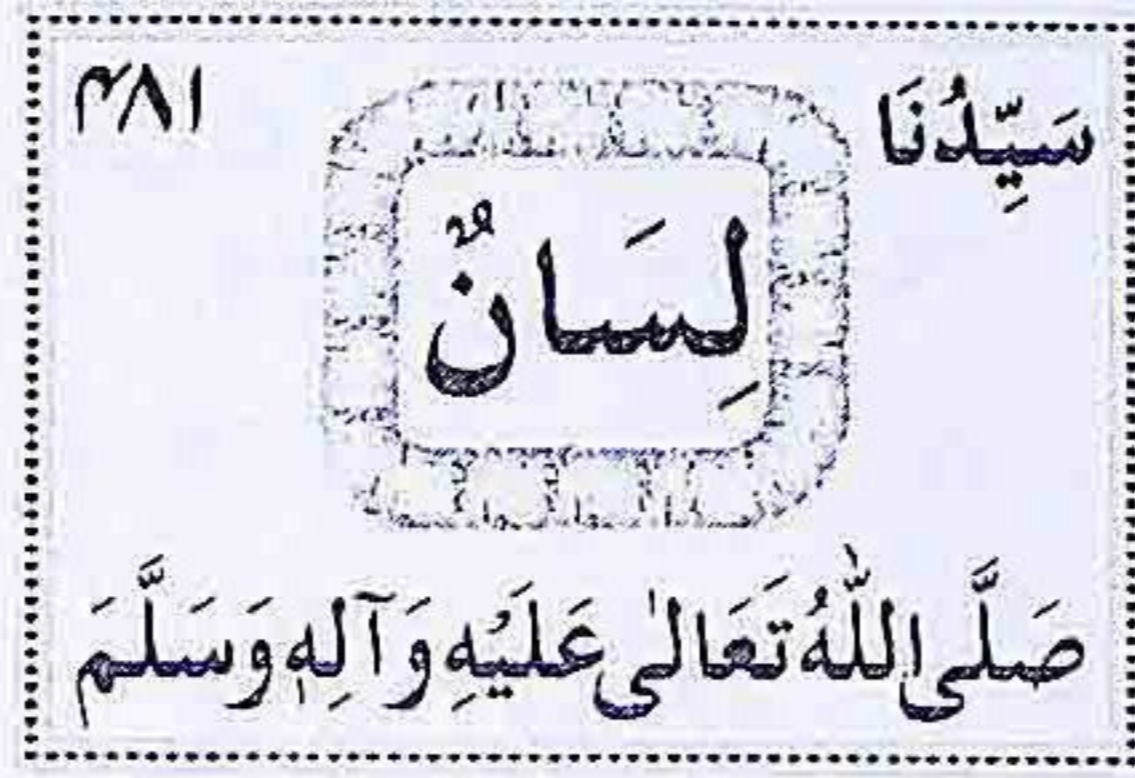 سَيِّدُنَا ۴۸۱
لِسَانٌ
صَلَّى اللّٰهُ تَعَالٰى عَلَيْهِ وَآلِهٖ وَسَلَّمَ